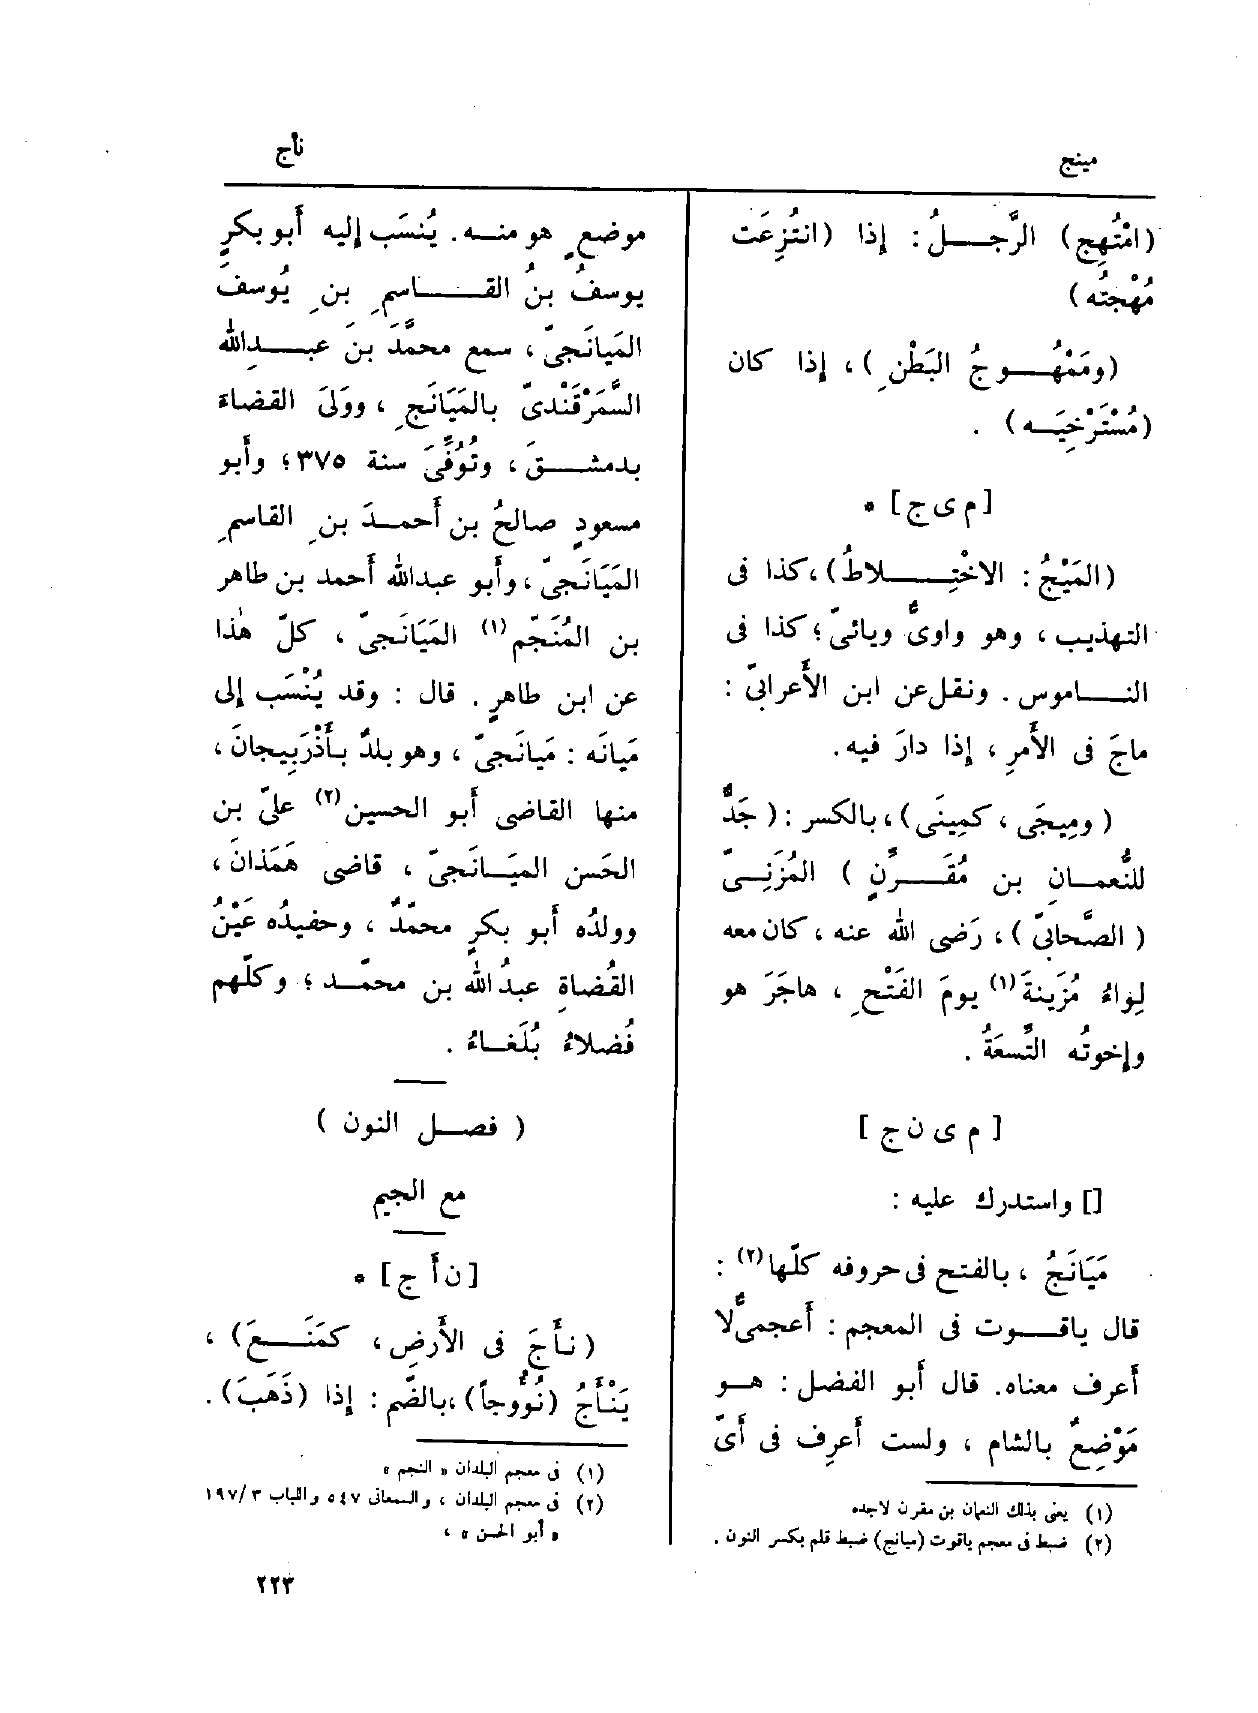 مينج
نأج
(امْتُهِج) الرَّجـــلُ: إذا (انتُزِعَت
مُهْجتُه)
(ومَمْهُــوجُ البَطْنِ)، إذا كان
(مُسْتَرْخِيَــه) .
[م ى ج] *
(المَيْجُ: الاخْتِــــلاطُ)، كذا فى
التهذيب، وهو واوىٌّ ويائىّ؛ كذا فى
النــاموس. ونقل عن ابن الأَعرابىّ :
ماجَ فى الأَمرِ ، إذا دارَ فيه.
(ومِيجَى، كمِينَى)، بالكسر : (جَدٌّ
للنُّعمــان بن مُقَــرِّنٍ) المُزَنِــىّ
(الصَّحابىّ)، رَضى الله عنه، كان معه
لِواءُ مُزَينةَ(١) يومَ الفَتْحِ ، هاجَرَ هو
وإخوتُه التِّسعَةُ .
[م ى ن ج]
[] واستدرك عليه :
مَيَانَجُ ، بالفتح فى حروفه كلّها(٢) :
قال ياقــوت فى المعجم : أَعجمىٌّ لا
أَعرف معناه. قال أَبو الفضل : هــو
مَوْضِعٌ بالشام ، ولست أَعرِف فى أَىّ
(١) يعنى بذلك النعمان بن مقرن لا جده
(٢) ضبط فى معجم ياقوت (ميانج) ضبط قلم بكسر النون .
موضعٍ هو منــه. يُنسَب إليه أَبو بكرٍ
يوسفُ بنُ القــــاسمِ بنِ يُوسفَ
المَيانَجىّ ، سمع محمَّدَ بنَ عبــدِ الله
السَّمَرْقَنْدىّ بالمَيَانَجِ ، ووَلَىَ القضاءَ
بدمشــقَ ، وتُوُفِّىَ سنة ٣٧٥؛ وأَبو
مسعودٍ صالحُ بن أَحمــدَ بنِ القاسمِ
المَيَانَجىّ، وأَبو عبدالله أَحمد بن طاهر
بن المُنَجّم(١) المَيَانَجىّ ، كلّ هٰذا
عن ابن طاهرٍ . قال : وقد يُنْسَب إلى
مَيانَه : مَيانَجىّ ، وهو بلدٌ بأَذْرَبِيجانَ ،
منها القاضى أَبو الحسين(٢) علىّ بن
الحَسن الميَــانَجىّ ، قاضى هَمَذانَ ،
وولدُه أَبو بكرٍ محمّدٌ ، وحفيدُه عَيْنُ
القُضاةِ عبدُ الله بن محمّــد ؛ وكلّهم
فُضلاءُ بُلَغــاءُ .
( فصــل النون )
مع الجيم
[ن أ ج] *
(نــأَجَ فى الأَرضِ ، كمَنَــــعَ) ،
يَنْأَجُ (نُؤُوجاً)، بالضّم : إذا (ذَهَبَ).
(١) فى معجم البلدان « النجم »
(٢) فى معجم البلدان ، والسمعانى ٥٤٧ واللباب ٣/١٩٧
« أبو الحسن » ،
٢٢٣